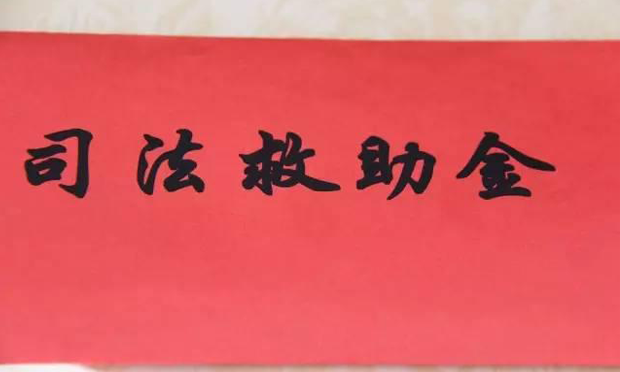 司法救助金